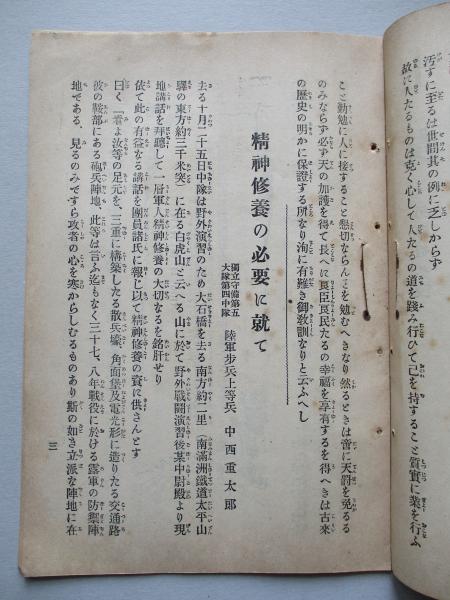 汚すに至るは世間其の例に乏しからず
故に人たるものは克く心して人たるの道を踐み行ひて己を持すること質實に業を行ふ
こと勤勉に人に接すること懇切ならんことを勉むへきなり然るときは啻に天罰を免るる
のみならず必ず天の加護を得て長へに良民たるの幸福を享有するを得へきは古來
の歴史の明かに保證する所なり洵に有難き御敎訓なりと云ふへし
精神修養の必要に就て
獨立守備第五
大隊第四中隊
陸軍步兵上等兵 中西重太郎
去る十月二十五日中隊は野外演習のため大石橋を去る南方約二里(南滿洲鐵道太平山
驛の東方約三千米突)に在る白虎山と云へる山に於て野外戰鬪演習後某中尉殿より現
地講話を拜聽して一層軍人精神修養の大切なるを銘肝せり
依て此の有益なる講話を團員諸氏に報じ以て精神修養の資に供さんとす
曰く『看よ汝等の足元を、三重に構築したる散兵壕、角面堡及電光形に造りたる交通路
彼の鞍部にある砲兵陣地、此等は言ふ迄もなく三十七、八年戰役に於ける露軍の防禦陣
地である、見るのみですら攻者の心を寒からしむるものあり斯の如き立派な陣地に在
三